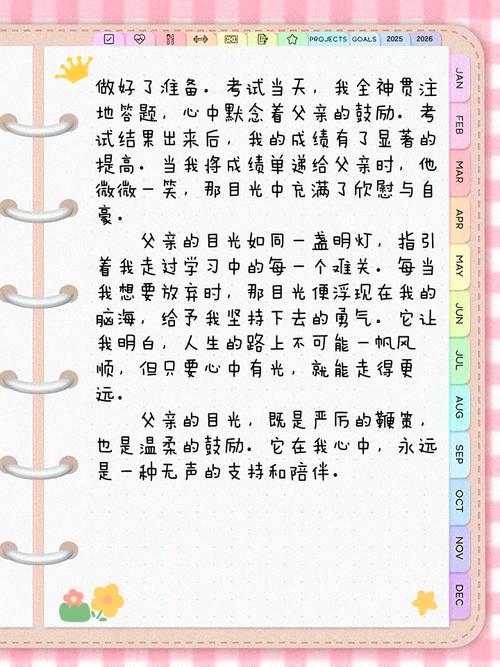 PROJECTS GOALS 2025 2026
做好了准备。考试当天，我全神贯注
地答题，心中默念着父亲的鼓励。考
试结果出来后，我的成绩有了显著的
提高。当我将成绩单递给父亲时，他
微微一笑，那目光中充满了欣慰与自
豪。
父亲的目光如同一盏明灯，指引
着我走过学习中的每一个难关。每当
我想要放弃时，那目光便浮现在我的
脑海，给予我坚持下去的勇气。它让
我明白，人生的路上不可能一帆风
顺，但只要心中有光，就能走得更
远。
父亲的目光，既是严厉的鞭策，
也是温柔的鼓励。它在我心中，永远
是一种无声的支持和陪伴。
JAN
FEB
MAR
APR
MAY
JUN
JUL
AUG
SEP
OCT
NOV
DEC